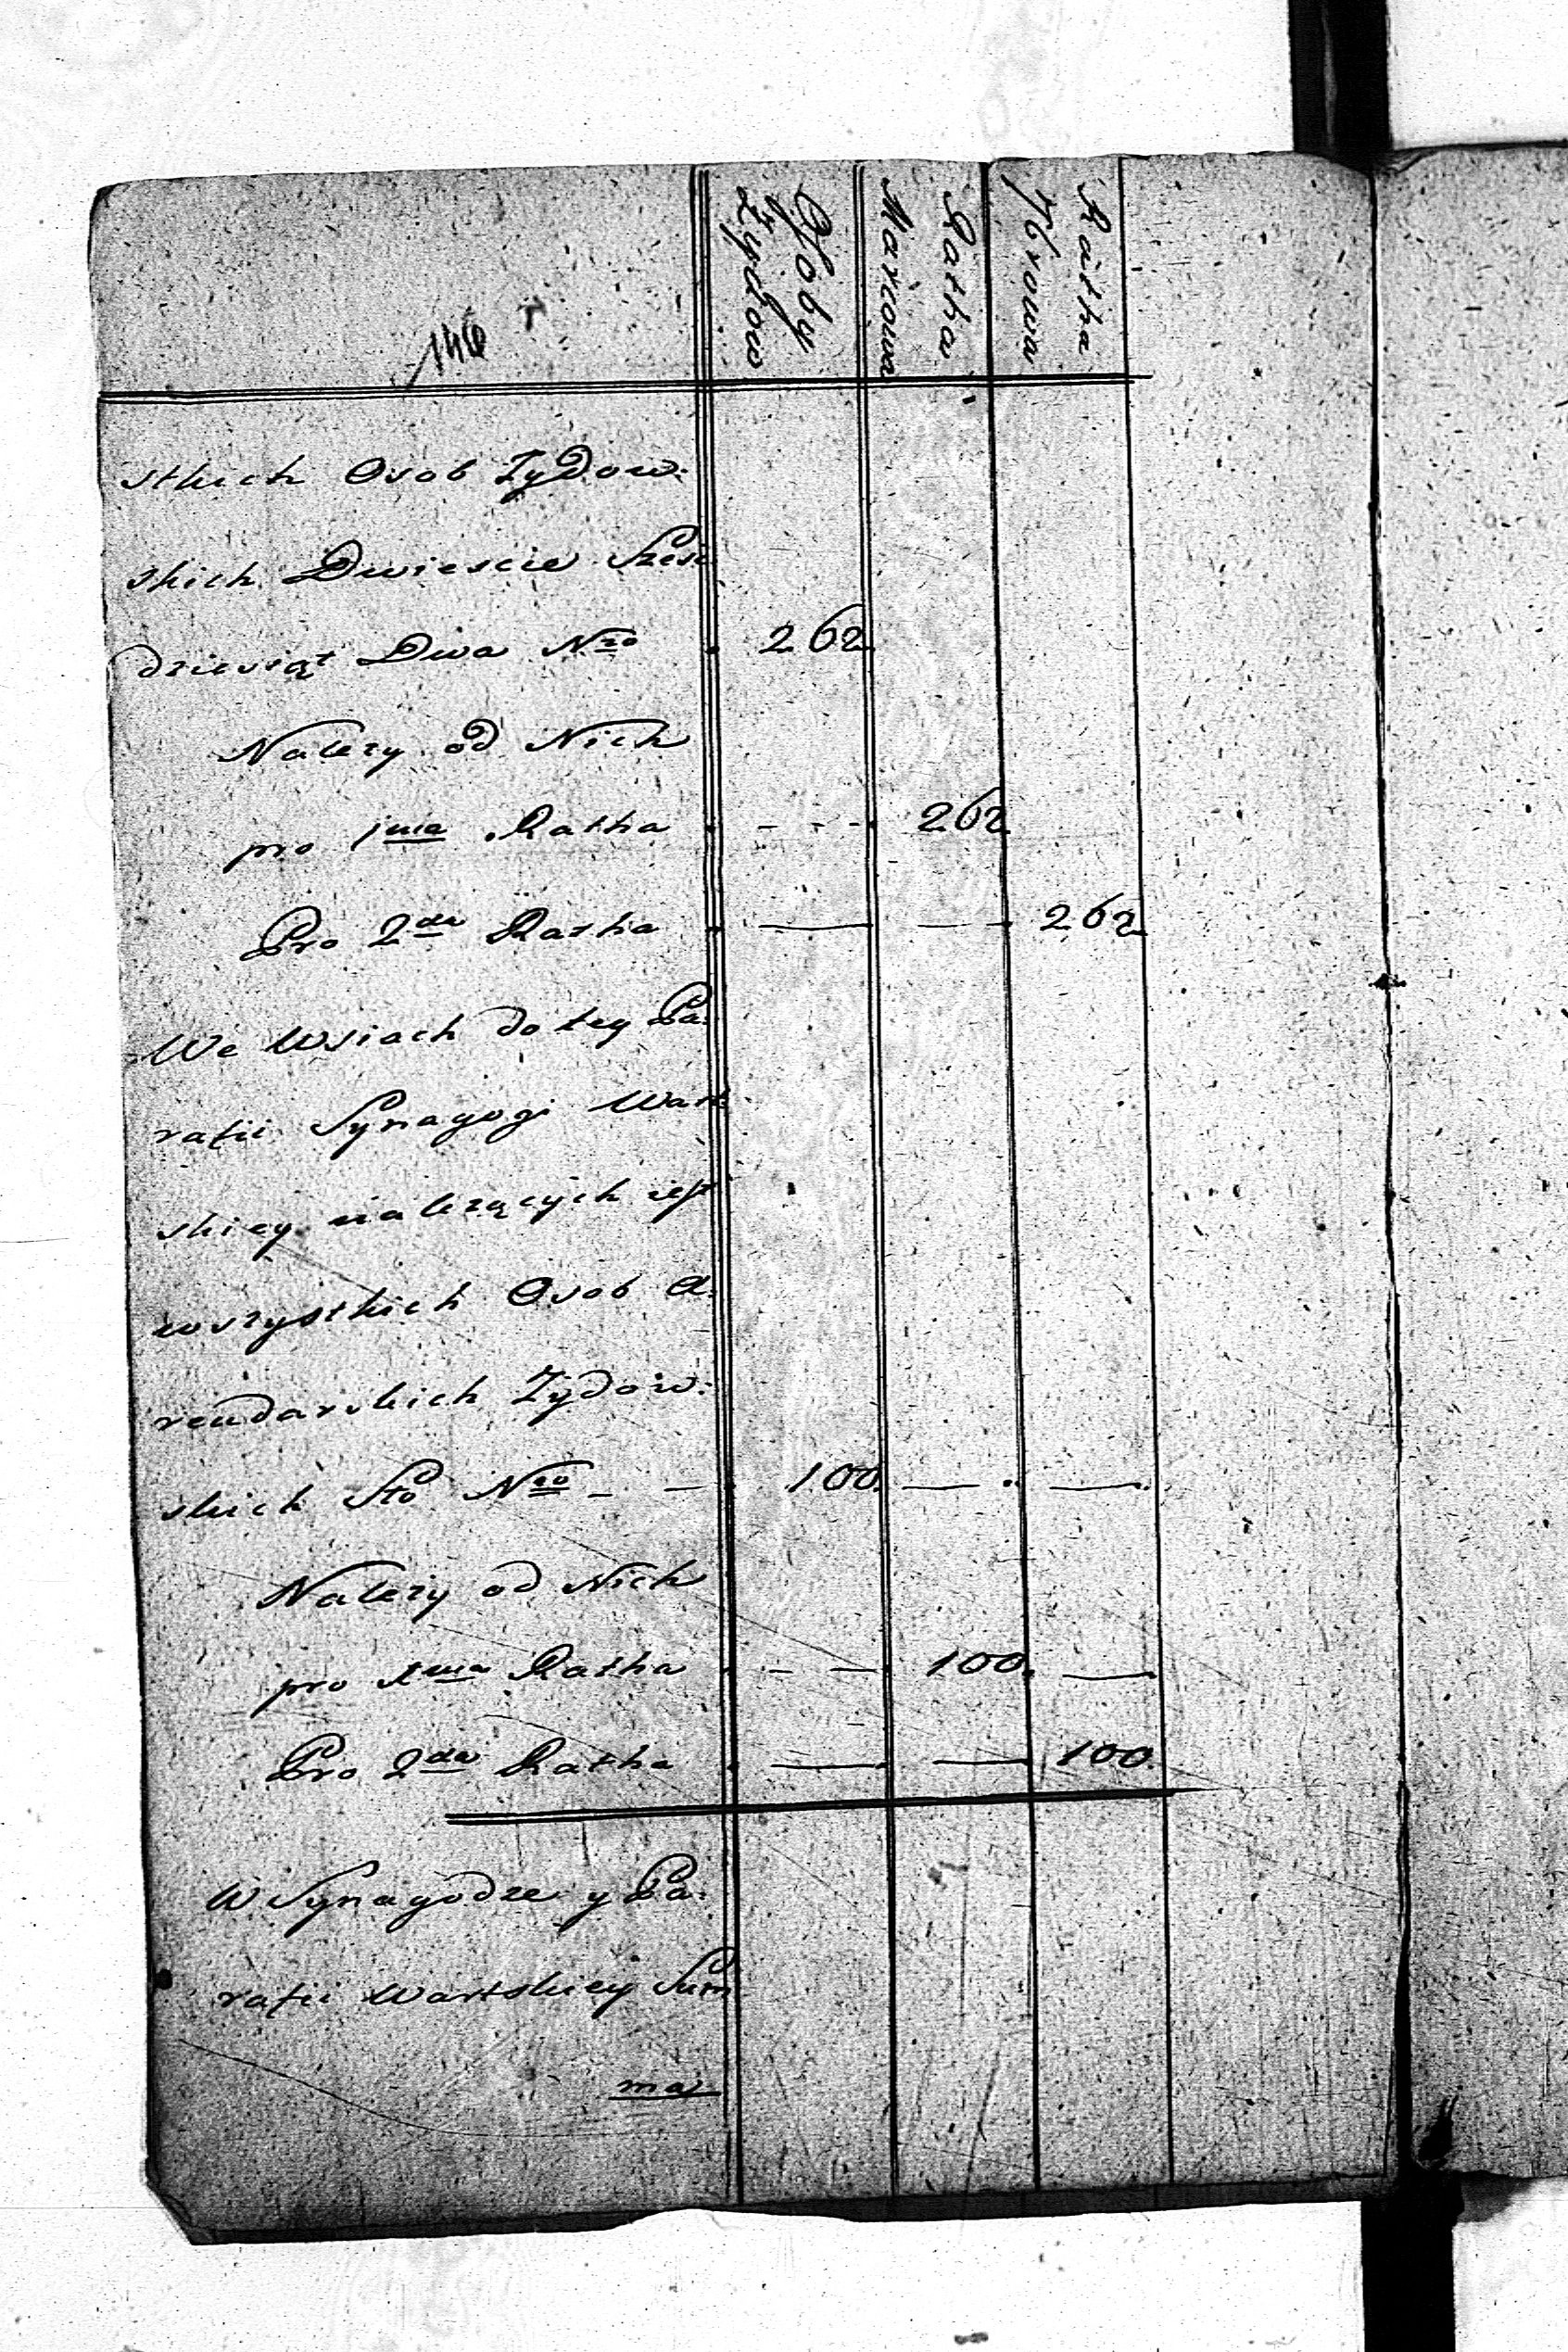 146
Osoby
Zydow
Ratha
Marcowa
Ratha
7browa
stkich Osob Zydow:
skich Dwiescie Szesc
dziesiąt Dwa Nro 262
Nalezy od Nich
pro 1ma Ratha - - - 262
Pro 2da Ratha — — 262
We Wsiach do tey Pa:
rafii Synagogi Wart:
skiey należących jest
wszystkich Osob A:
rendarskich Zydow:
skich Sto Nro - - 100. — —
Nalezy od Nich
pro 1ma Ratha - — 100. —
Pro 2da Ratha — — 100.
W Synagodze y Pa:
rafii Wartskiey Sum
ma